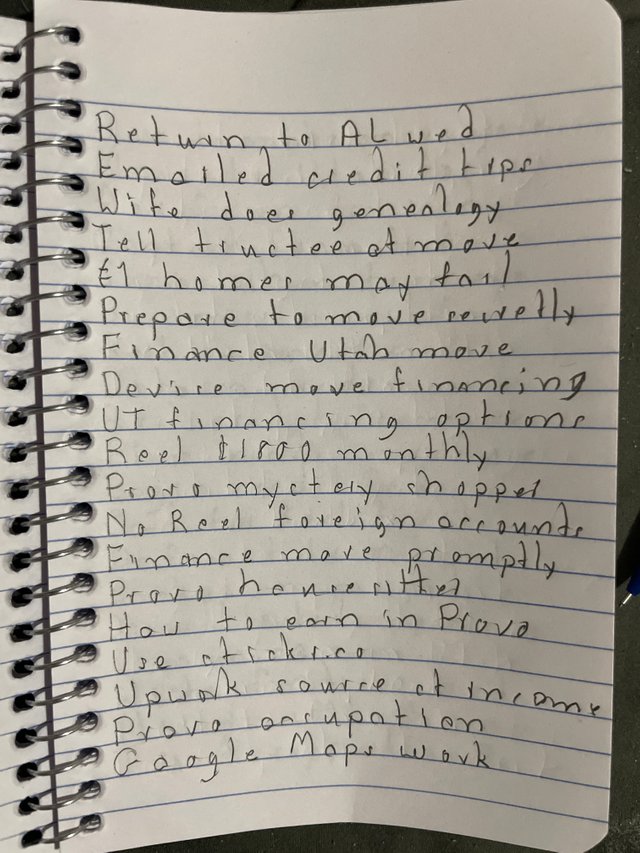 Return to AL wed
Emailed credit tips
Wife does genealogy
Tell trustee of move
€1 homes may fail
Prepare to move
Finance Utah move
Devise move financing
UT financing options
Reel $1800 monthly
Provo mystery shopper
No Reel foreign accounts
Finance move promptly
Provo housesitter
How to earn in Provo
Use
Upwork source of income
Provo occupation
Google Maps work